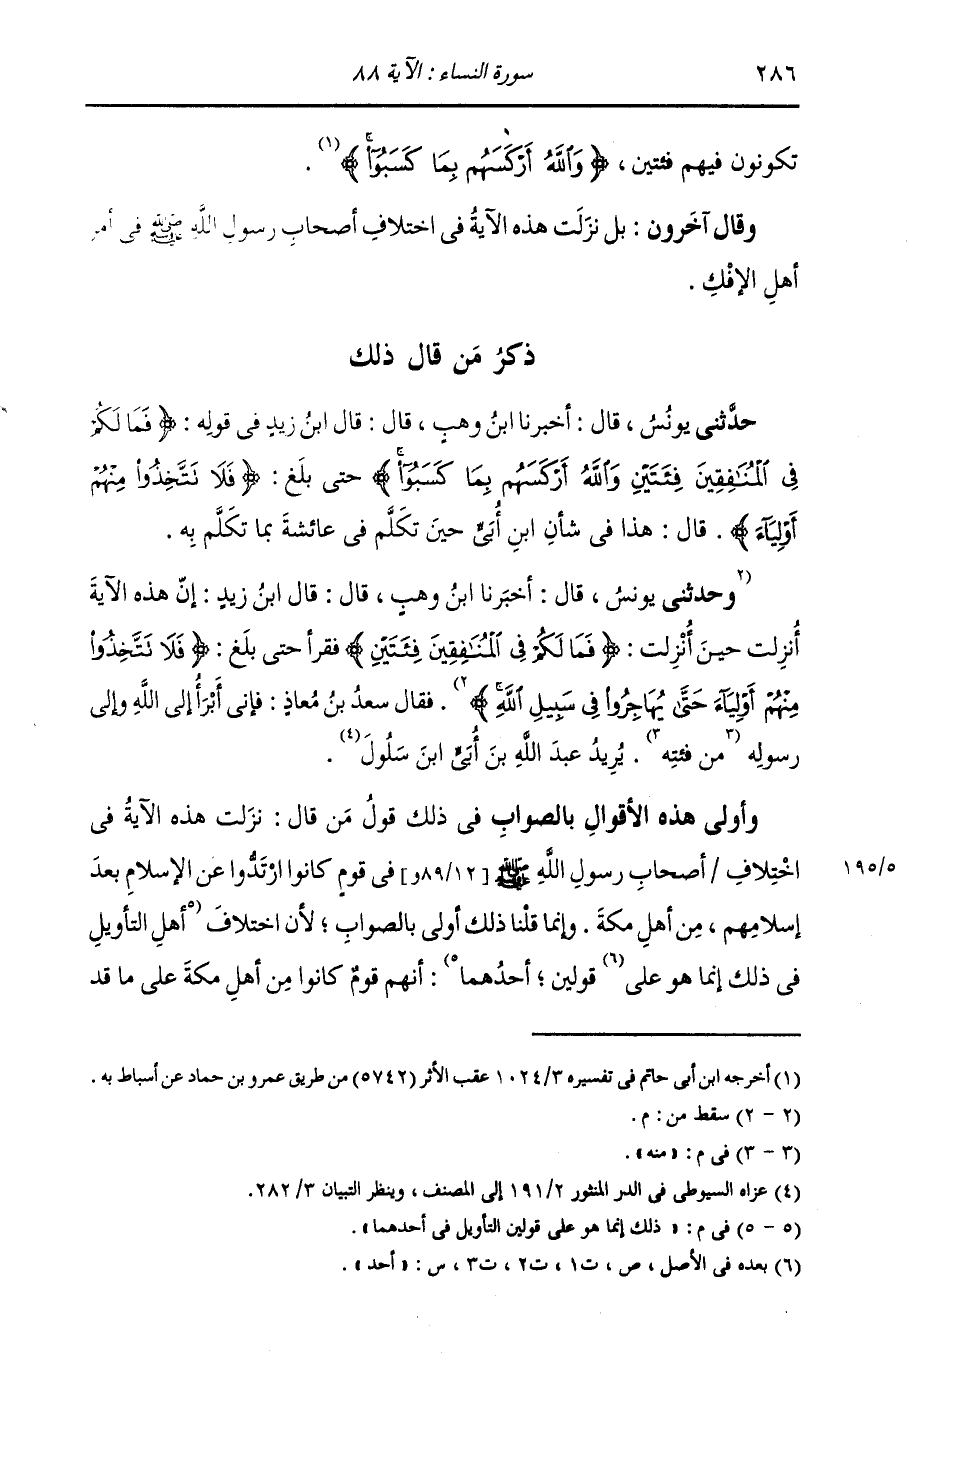 ٢٨٦ سورة النساء : الآية ٨٨
تكونون فيهم فئتين ، ﴿ وَٱللَّهُ أَرْكَسَهُم بِمَا كَسَبُوٓا۟ ﴾(١) .
وقال آخَرون : بل نزَلَت هذه الآيةُ فى اختلافِ أصحابِ رسولِ اللَّهِ ﷺ فى أمرِ
أهلِ الإفْكِ .
ذكرُ مَن قال ذلك
حدَّثنى يونُسُ ، قال : أخبرنا ابنُ وهبٍ ، قال : قال ابنُ زيدٍ فى قولِه : ﴿ فَمَا لَكُمْ
فِى ٱلْمُنَٰفِقِينَ فِئَتَيْنِ وَٱللَّهُ أَرْكَسَهُم بِمَا كَسَبُوٓا۟ ﴾ حتى بلَغ : ﴿ فَلَا نَتَّخِذُوا۟ مِنْهُمْ
أَوْلِيَآءَ ﴾ . قال : هذا فى شأنِ ابنِ أُبَىٍّ حينَ تكَلَّم فى عائشةَ بما تكَلَّم به .
(٢وحدثنى يونسُ ، قال : أخبَرنا ابنُ وهبٍ ، قال : قال ابنُ زيدٍ : إنّ هذه الآيةَ
أُنزِلت حينَ أُنْزِلت : ﴿ فَمَا لَكُمْ فِى ٱلْمُنَٰفِقِينَ فِئَتَيْنِ ﴾ فقرأ حتى بلَغ : ﴿ فَلَا نَتَّخِذُوا۟
مِنْهُمْ أَوْلِيَآءَ حَتَّىٰ يُهَاجِرُوا۟ فِى سَبِيلِ ٱللَّهِ ﴾٢) . فقال سعدُ بنُ مُعاذٍ : فإنى أَبْرَأُ إلى اللَّهِ وإلى
رسولِه (٣من فئتِه٣) . يُرِيدُ عبدَ اللَّهِ بنَ أُبَىٍّ ابنَ سَلُولَ(٤) .
وأولى هذه الأقوالِ بالصوابِ فى ذلك قولُ مَن قال : نزَلت هذه الآيةُ فى
اخْتِلافِ / أصحابِ رسولِ اللَّهِ ﷺ [٨٩/١٢و] فى قومٍ كانوا ارْتَدُّوا عن الإسلامِ بعدَ ١٩٥/٥
إسلامِهم ، مِن أهلِ مكةَ . وإنما قلْنا ذلك أولى بالصوابِ ؛ لأن اختلافَ (٥أهلِ التأويلِ
فى ذلك إنما هو على(٦) قولين ؛ أحدُهما٥) : أنهم قومٌ كانوا مِن أهلِ مكةَ على ما قد
(١) أخرجه ابن أبى حاتم فى تفسيره ١٠٢٤/٣ عقب الأثر (٥٧٤٢) من طريق عمرو بن حماد عن أسباط به .
(٢ - ٢) سقط من : م .
(٣ - ٣) فى م : « منه » .
(٤) عزاه السيوطى فى الدر المنثور ١٩١/٢ إلى المصنف ، وينظر التبيان ٢٨٢/٣.
(٥ - ٥) فى م : « ذلك إنما هو على قولين التأويل فى أحدهما » .
(٦) بعده فى الأصل ، ص ، ت١ ، ت٢ ، ت٣ ، س : « أحد » .